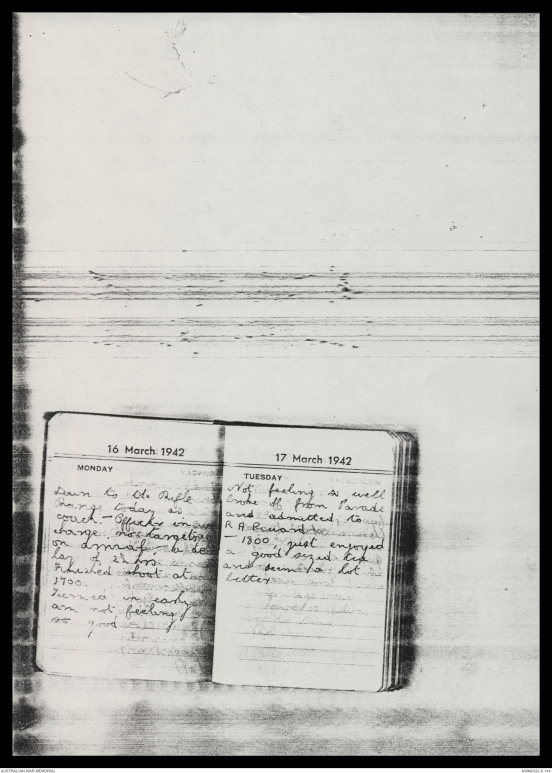 16 March 1942
MONDAY
Down to the Rifle
Range today as
coach. - Officer in
charge, no targets
on arrival a de
lay of 2½ hrs.
Finished shoot at
1700.
Turned in early
am not feeling
so good
17 March 1942
TUESDAY
Not feeling so well
broke off from Parade
and admitted to
R.A.P. ward
- 1800 just enjoyed
a good sized tea
and seem a lot
better
AUSTRALIAN WAR MEMORIAL